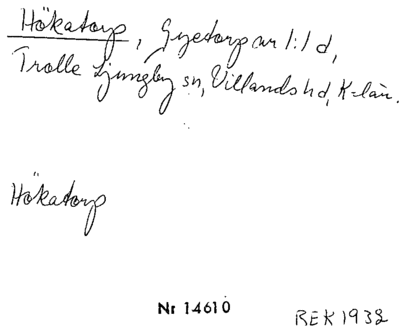 Hökatorp, Gyetorp nr 1:1 d,
Trolle Ljungby sn, Villands hd, K-län.
Hökatorp
Nr 14610
REK 1932